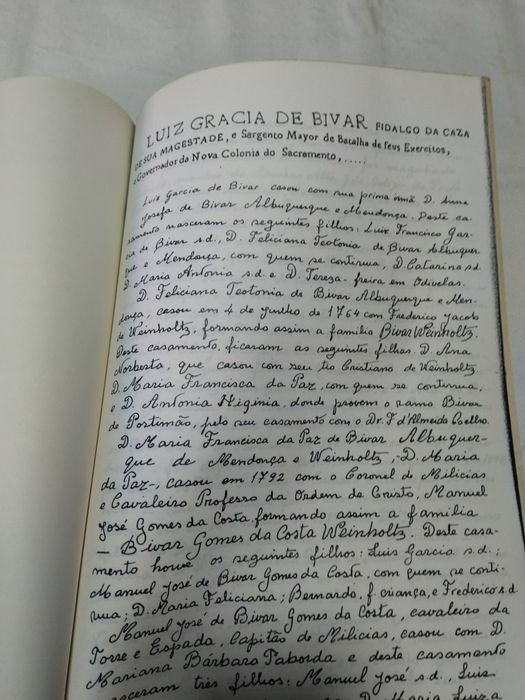 LUIZ GRACIA DE BIVAR FIDALGO DA CAZA
DE SUA MAGESTADE, e Sargento Mayor de Batalha de seus Exercitos,
e Governador da Nova Colonia do Sacramento, .....
Luiz Garcia de Bivar casou com sua prima irmã D. Anna
Josefa de Bivar Albuquerque e Mendonça. Deste ca-
samento nasceram os seguintes filhos: Luiz Francisco Gar-
cia de Bivar s.d., D. Feliciana Teotonia de Bivar Albuquer
que e Mendonça, com quem se continua, D. Catarina s.d
D. Maria Antonia s.d. e D. Tereza - freira em Odivelas.
D. Feliciana Teotonia de Bivar Albuquerque e Men-
donça, casou em 4 de Junho de 1764 com Frederico Jacob
de Weinholtz, formando assim a familia Bivar Weinholtz.
Deste casamento, ficaram as seguintes filhas. D. Ana
Norbesta, que casou com seu tio Cristiano de Weinholtz
D. Maria Francisca da Paz, com quem se continua,
e D. Antonia Higinia, donde provem o ramo Bivar
de Portimão, pelo seu casamento com o Dr. F. d'Almeida Coelho.
D. Maria Francisca da Paz de Bivar Albuquer-
que de Mendonça e Weinholtz, -D. Maria
da Paz-, casou em 1792 com o Coronel de Milicias
e Cavaleiro Professo da Ordem de Cristo, Manuel
José Gomes da Costa formando assim a familia
— Bivar Gomes da Costa Weinholtz. Deste casa-
mento houve os seguintes filhos: Luis Garcia s.d.;
Manuel José de Bivar Gomes da Costa, com quem se conti-
nua; D. Maria Feliciana; Bernardo, f. criança, e Frederico s.d.
Manuel José de Bivar Gomes da Costa, cavaleiro da
Torre e Espada, Capitão de Milicias, casou com D.
Mariana Bárbara Taborda e deste casamento
nasceram três filhos: Manuel José s.d., Luis